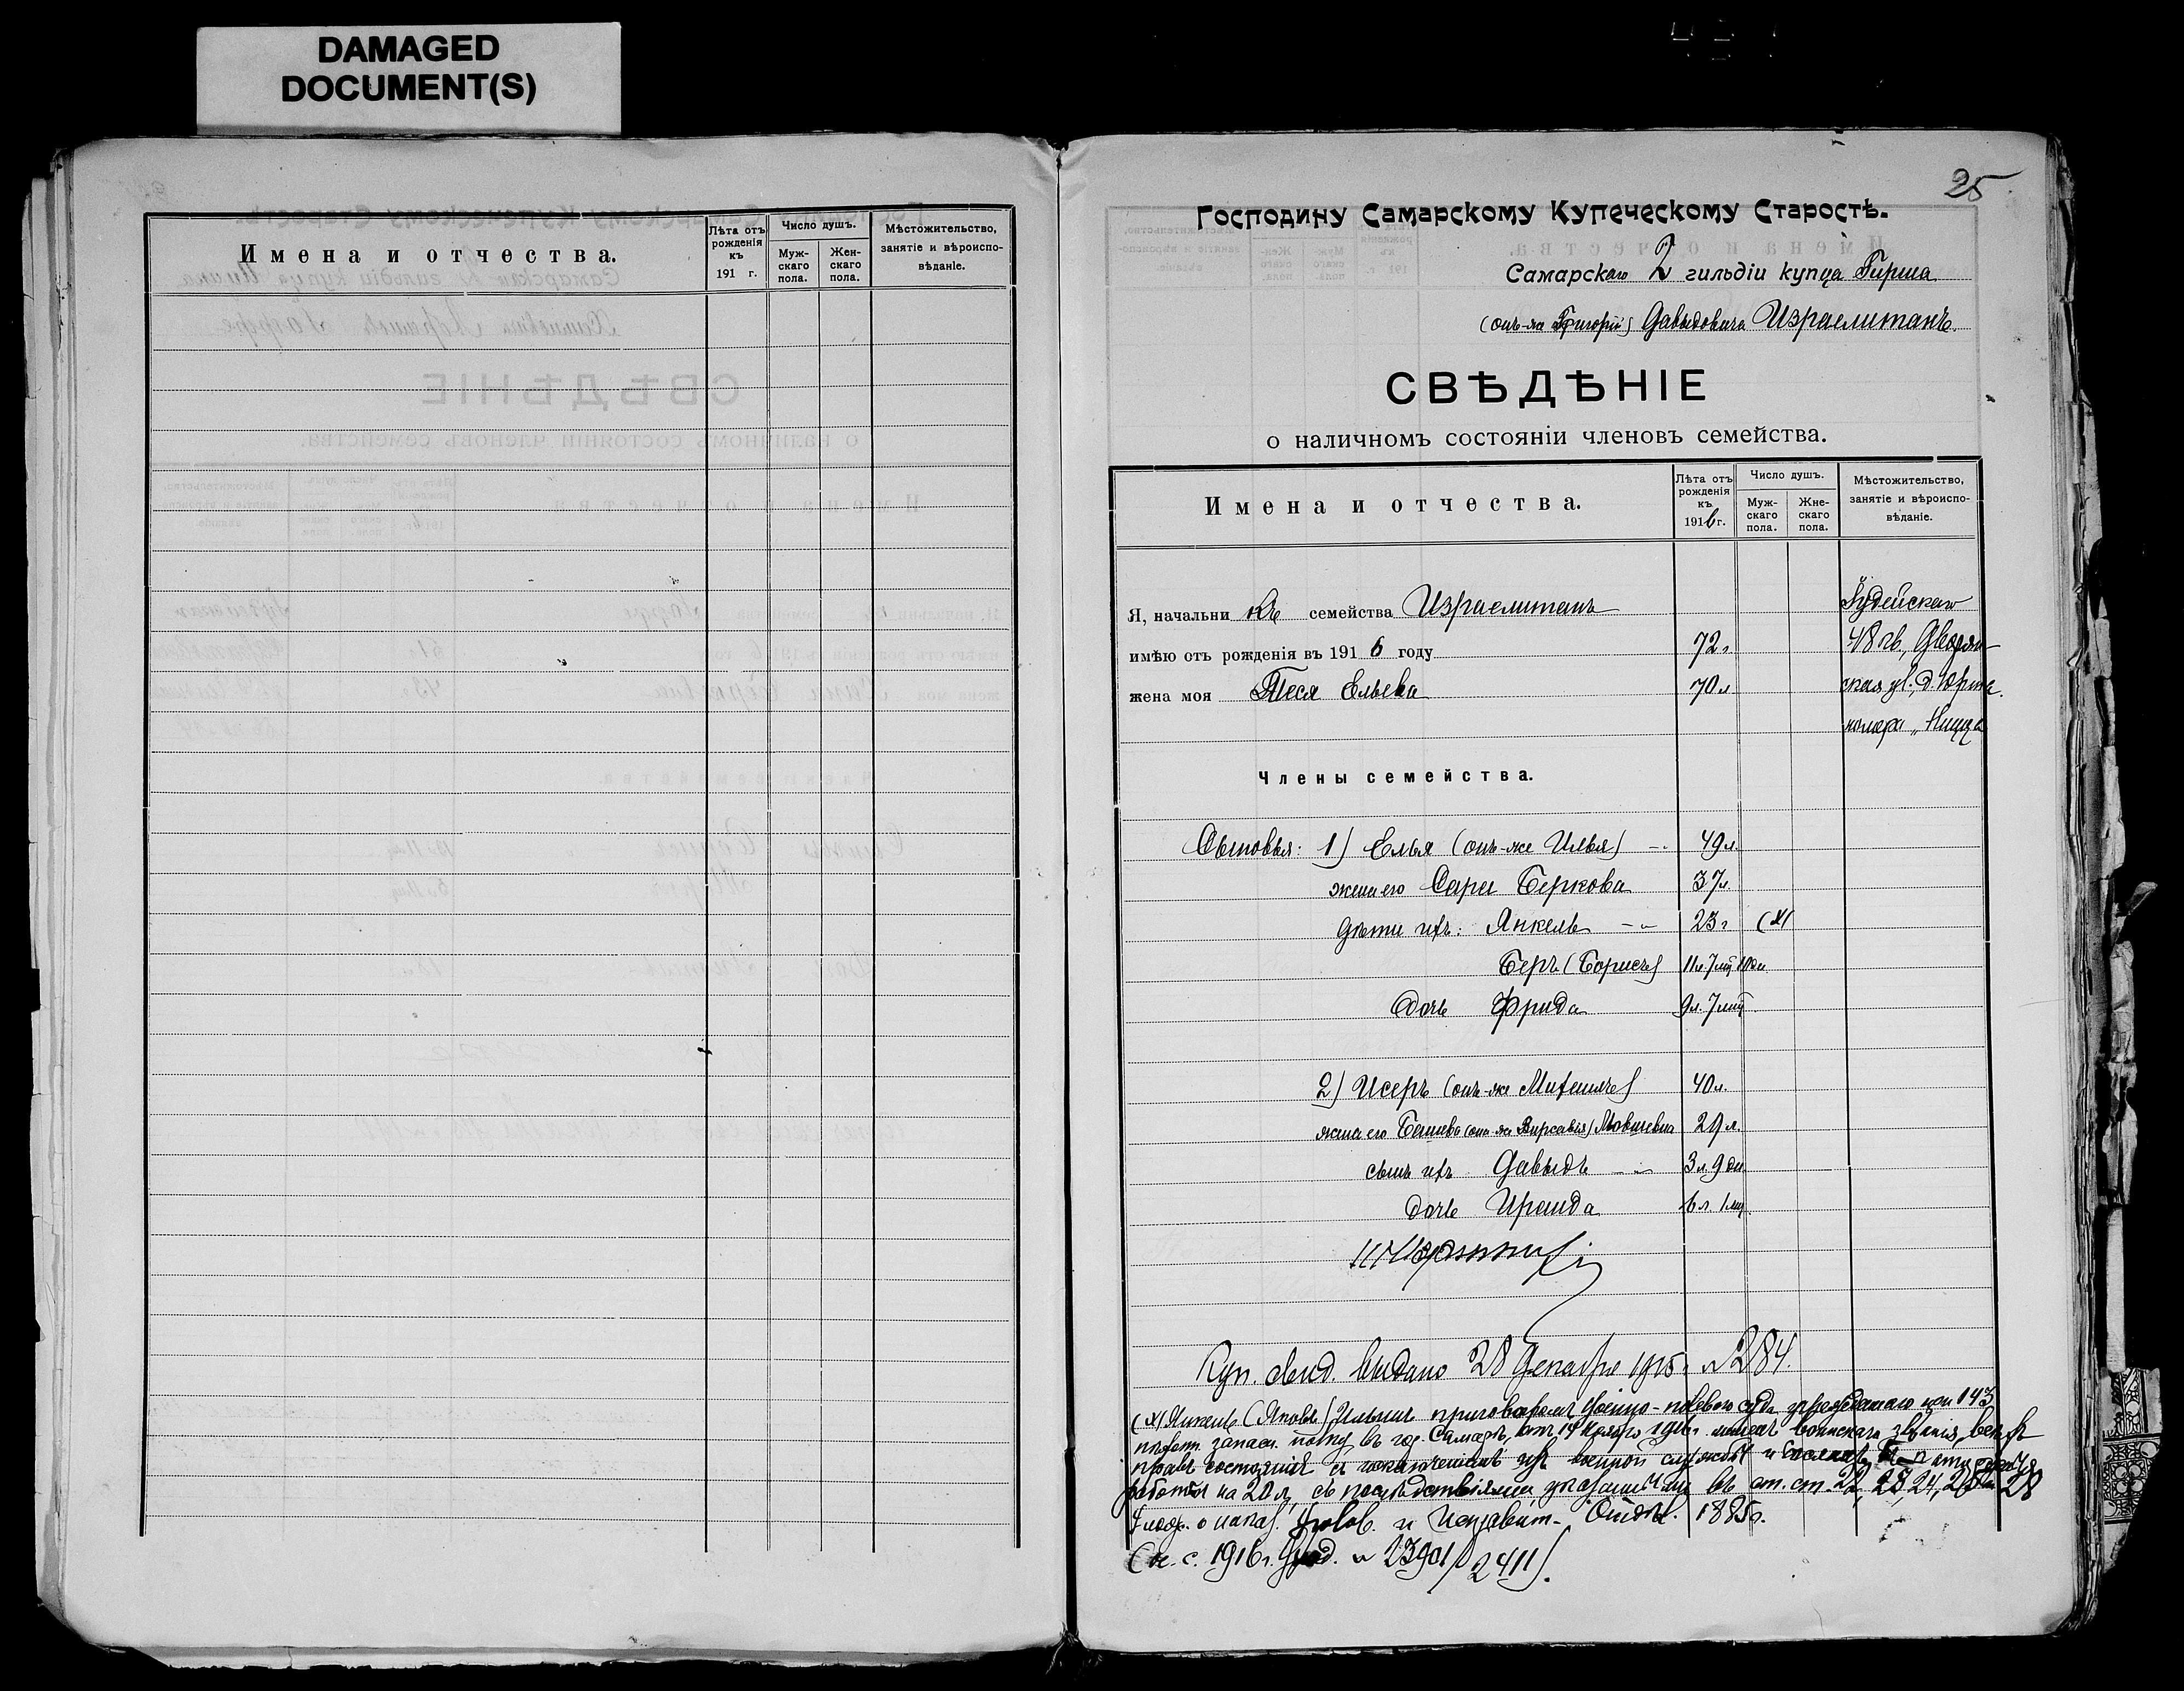 DAMAGED
DOCUMENT(S)
Имена и отчества.
Лѣта отъ рожденія къ 191 г.
Число душъ.
Муж-скаго пола.
Жен-скаго пола.
Мѣстожительство, занятіе и вѣроиспо-вѣданіе.
25
Господину Самарскому Купеческому Старостѣ.
Самарскаго 2 гильдіи купца Гирша
(онъ-же Григорій) Давыдовича Израелитанъ.
СВѢДѢНІЕ
о наличномъ состояніи членовъ семейства.
Имена и отчества.
Лѣта отъ рожденія къ 1916 г.
Число душъ.
Муж-скаго пола.
Жне-скаго пола.
Мѣстожительство, занятіе и вѣроиспо-вѣданіе.
Я, начальни къ семейства Израелитанъ Іудейскаго
имѣю отъ рожденія въ 1916 году 72 г. 48 кв., Дворян
жена моя Песя Ельева 70 л ская ул., д.
номера „Ницца
Члены семейства.
Сыновья: 1) Елья (онъ-же Илья) 49 л.
жена его Сара Беркова 37 л.
дѣти ихъ: Янкель 23 г (х)
Беръ (Борисъ) 11 л. 7 мц 10 дн
дочь Фрида 9 л. 7 мц
2) Исеръ (онъ-же Михаилъ) 40 л.
жена его Башева (она-же Вирсавія) Мовшевна 29 л.
сынъ ихъ Давыдъ 3 л. 9 дн
дочь Ираида 6 л. 1 мц
Куп. свид. выдано 28 Декабря 1915 г. № 284.
(х) Янкель (Яковъ) Ильинъ приговоромъ военно-полевого суда учрежденнаго при 143
пѣхотн. запасн. полку въ гор. Самарѣ, отъ 14 ноября 1916 г. лишенъ воинскаго званія, всѣхъ
правъ состоянія съ исключеніемъ изъ военной службы и
работы на 20 л. съ послѣдствіями указанными въ ст. ст. 22, 23, 24, 25 и 28
улож. о наказ. Уголов. и Исправит. 1885 г.
(вх. с. 1916 г. № 23901/2411).